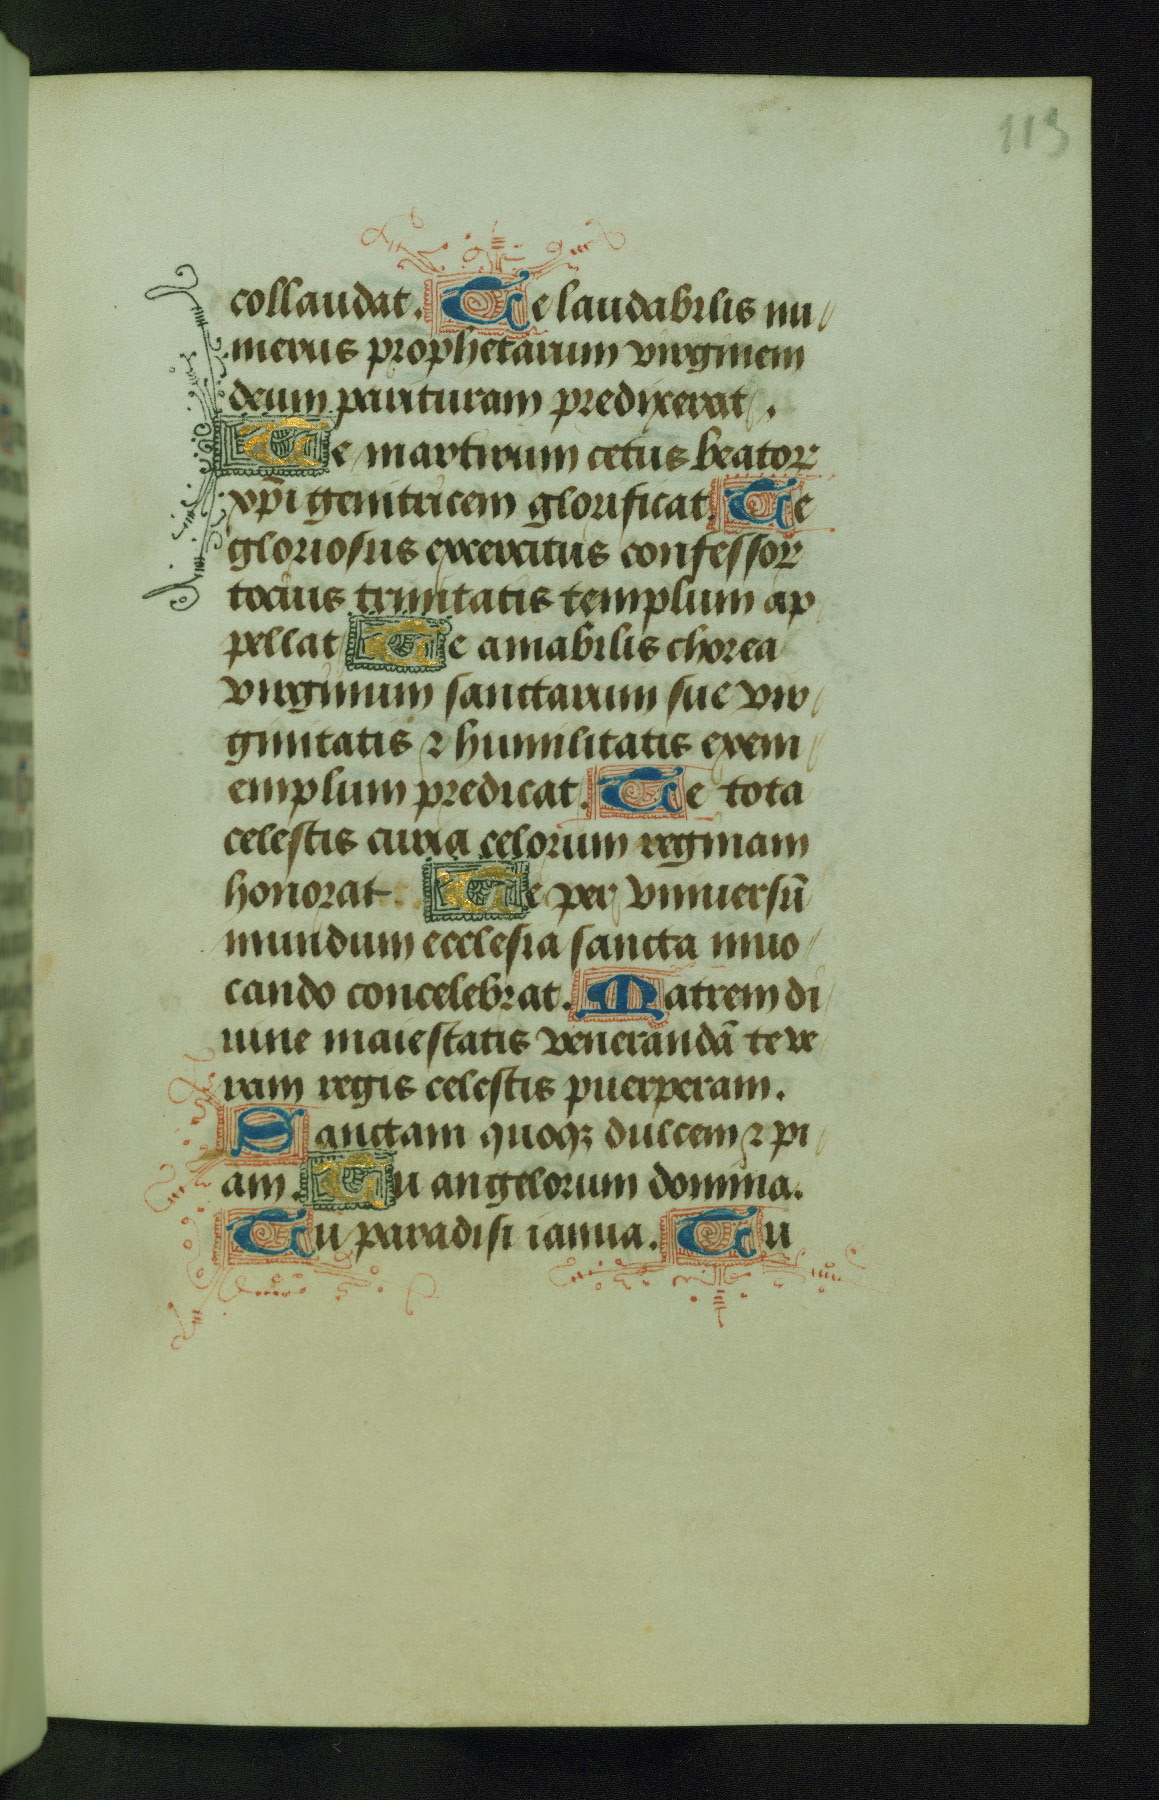 113
collaudat. Te laudabilis nu
merus prophetarum virginem
deum parituram predixerat.
Te martirum cetus beator
xp̄i genitricem glorificat. Te
gloriosus exercitus confessor
tocius trinitatis templum ap
pellat Te amabilis chorea
virginum sanctarum sue vir
ginitatis ⁊ humilitatis exem
emplum predicat. Te tota
celestis curia celorum reginam
honorat. Te per vniuersū
mundum ecclesia sancta inuo
cando concelebrat. Matrem di
uine maiestatis venerandā te ve
ram regis celestis puerperam.
Sanctam quoqꝫ dulcem ⁊ pi
am. Tu angelorum domina.
Tu paradisi ianua. Tu